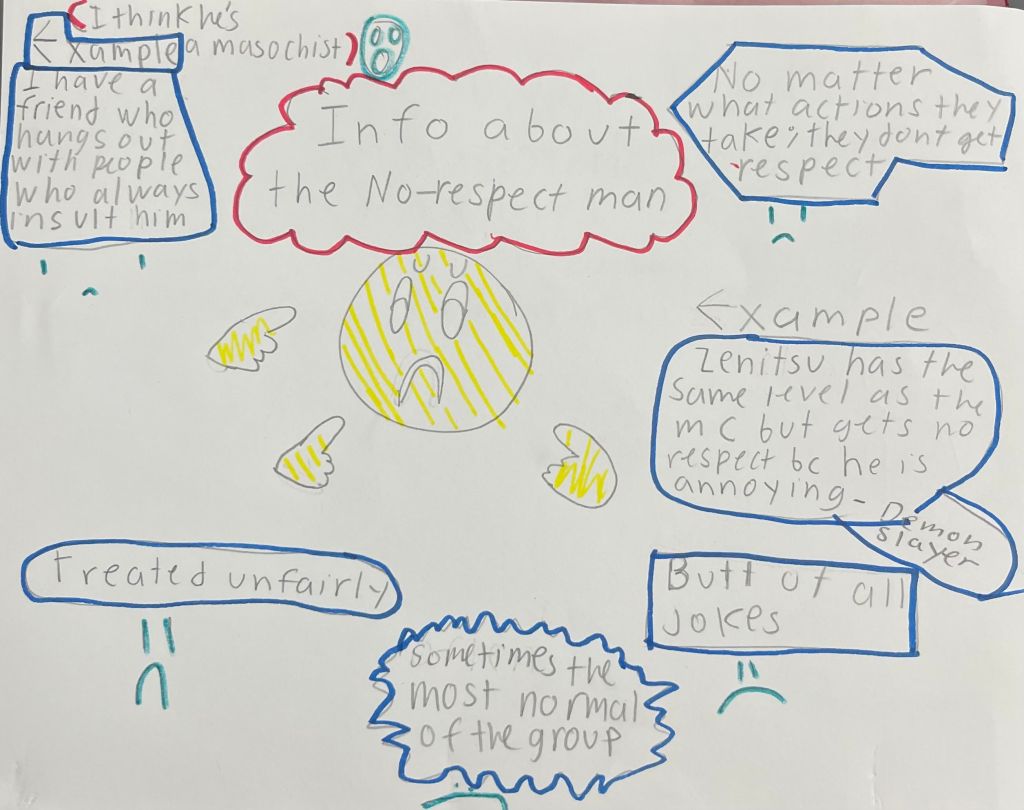 (I think he's
a masochist)
Example
I have a
friend who
hangs out
with people
who always
insult him
Info about
the No-respect man
No matter
what actions they
take, they dont get
respect
Example
Zenitsu has the
same level as the
mc but gets no
respect bc he is
annoying-
Demon
slayer
Treated unfairly
Butt of all
jokes
sometimes the
most normal
of the group